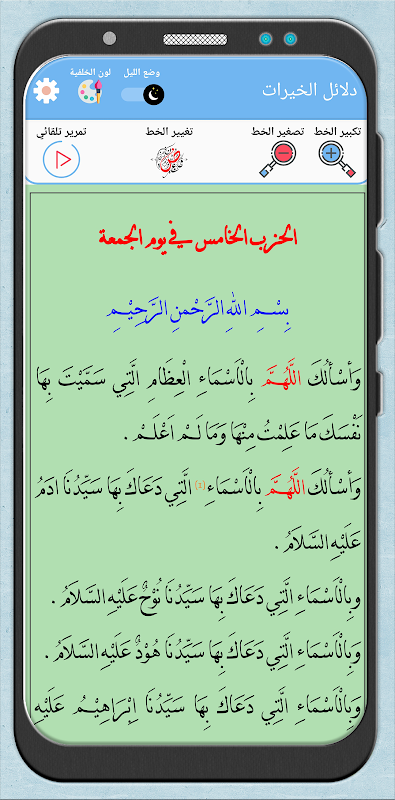 دلائل الخيرات
وضع الليل
لون الخلفية
تكبير الخط
تصغير الخط
تغيير الخط
تمرير تلقائي
الحزب الخامس في يوم الجمعة
بِسْمِ اللهِ الرَّحْمنِ الرَّحِيْمِ
وَأَسْأَلُكَ اللَّهُمَّ بِالْاَسْمَاءِ الْعِظَامِ الَّتِي سَمَّيْتَ بِهَا
نَفْسَكَ مَا عَلِمْتُ مِنْهَا وَمَا لَمْ اَعْلَمْ .
وَأَسْأَلُكَ اللَّهُمَّ بِالْاَسْمَاءِ (1) الَّتِي دَعَاكَ بِهَا سَيِّدُنَا ادَمُ
عَلَيْهِ السَّلَامُ .
وَبِالْاَسْمَاءِ الَّتِي دَعَاكَ بِهَا سَيِّدُنَا نُوْحٌ عَلَيْهِ السَّلَامُ .
وَبِالْاَسْمَاءِ الَّتِي دَعَاكَ بِهَا سَيِّدُنَا هُوْدٌ عَلَيْهِ السَّلَامُ .
وَبِالْاَسْمَاءِ الَّتِي دَعَاكَ بِهَا سَيِّدُنَا اِبْرَاهِيْمُ عَلَيْهِ